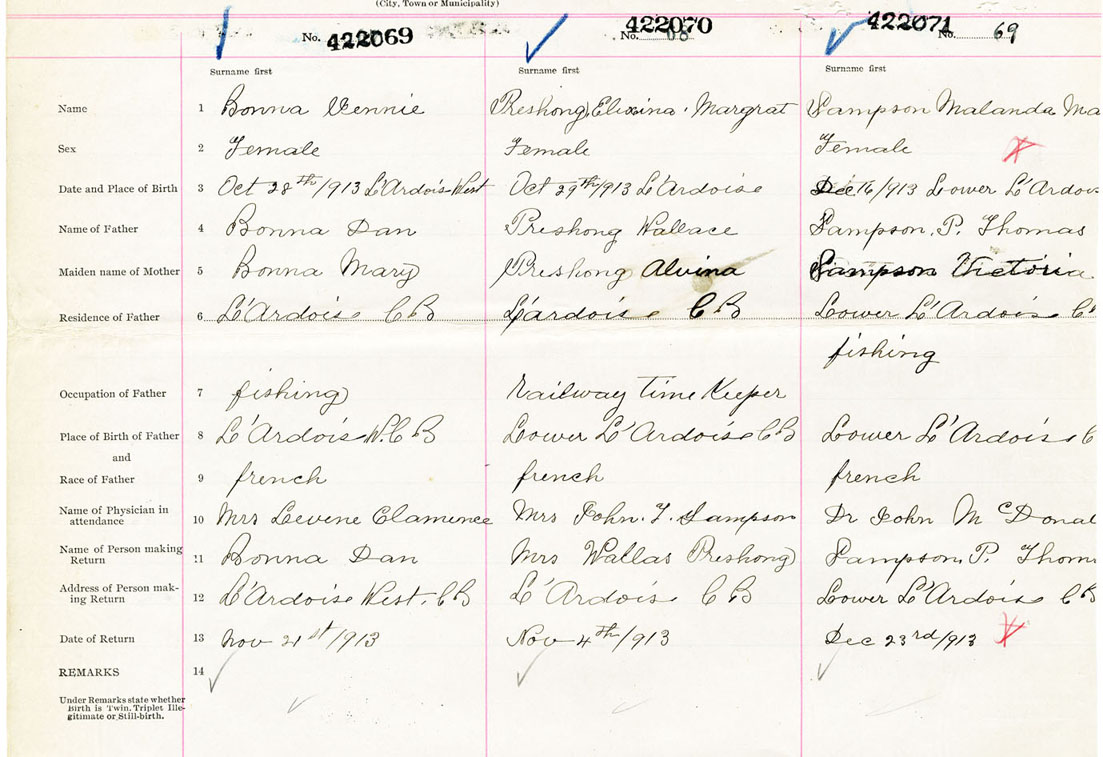 (City, Town or Municipality)
No. 422069 No. 422070 68 422071 No. 69
Surname first Surname first Surname first
Name 1 Bonna Vennie Preshong Elixina Margrat Sampson Malanda Ma
Sex 2 Female Female Female
Date and Place of Birth 3 Oct 28th/913 L'Ardois West Oct 29th/913 L'Ardoise Dec 16/913 Lower L'Ardois
Name of Father 4 Bonna Dan Preshong Wallace Sampson, P. Thomas
Maiden name of Mother 5 Bonna Mary Preshong Alvina Sampson Victoria
Residence of Father 6 L'Ardoise CB L'ardoise CB Lower L'Ardoise C
fishing
Occupation of Father 7 fishing railway time Keeper
Place of Birth of Father 8 L'Ardois W.CB Lower L'Ardoise CB Lower L'Ardoise C
and
Race of Father 9 french french french
Name of Physician in
attendance 10 Mrs Levene Clamence Mrs John. T. Sampson Dr John McDonal
Name of Person making
Return 11 Bonna Dan Mrs Wallas Preshong Sampson, P. Thom
Address of Person mak-
ing Return 12 L'Ardoise West, CB L'Ardoise CB Lower L'Ardoise CB
Date of Return 13 Nov 21st/913 Nov 4th/913 Dec 23rd/913
REMARKS 14
Under Remarks state whether
Birth is Twin, Triplet Ille-
gitimate or Still-birth.